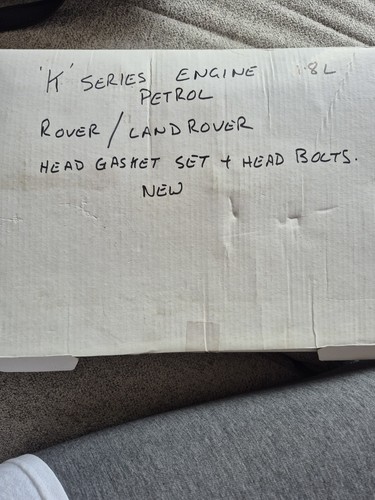 'K' SERIES ENGINE 1.8 L
PETROL
ROVER / LANDROVER
HEAD GASKET SET + HEAD BOLTS.
NEW